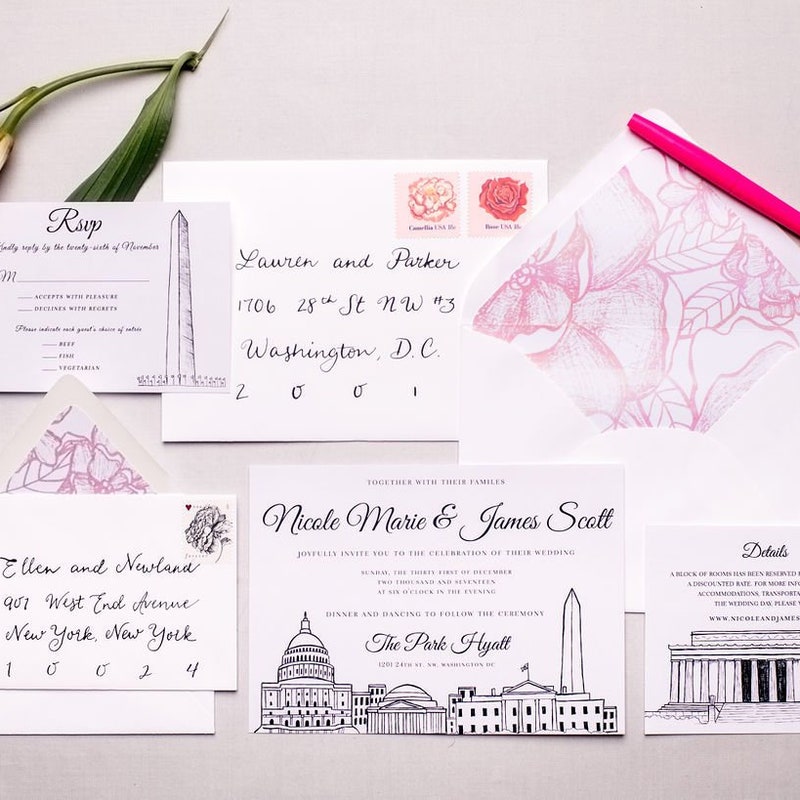 Rsvp
Kindly reply by the twenty-sixth of November
M
ACCEPTS WITH PLEASURE
DECLINES WITH REGRETS
Please indicate each guest's choice of entrée
BEEF
FISH
VEGETARIAN
Camellia USA 18c
Rose USA 18c
Lauren and Parker
1706 28th St NW #3
Washington, D.C.
2 0 0 1
forever
Ellen and Newland
901 West End Avenue
New York, New York
1 0 0 2 4
TOGETHER WITH THEIR FAMILES
Nicole Marie & James Scott
JOYFULLY INVITE YOU TO THE CELEBRATION OF THEIR WEDDING
SUNDAY, THE THIRTY FIRST OF DECEMBER
TWO THOUSAND AND SEVENTEEN
AT SIX O'CLOCK IN THE EVENING
DINNER AND DANCING TO FOLLOW THE CEREMONY
The Park Hyatt
1201 24TH ST. NW, WASHINGTON DC
Details
A BLOCK OF ROOMS HAS BEEN RESERVED
A DISCOUNTED RATE. FOR MORE INFO
ACCOMMODATIONS, TRANSPORTA
THE WEDDING DAY, PLEASE V
WWW.NICOLEANDJAMES